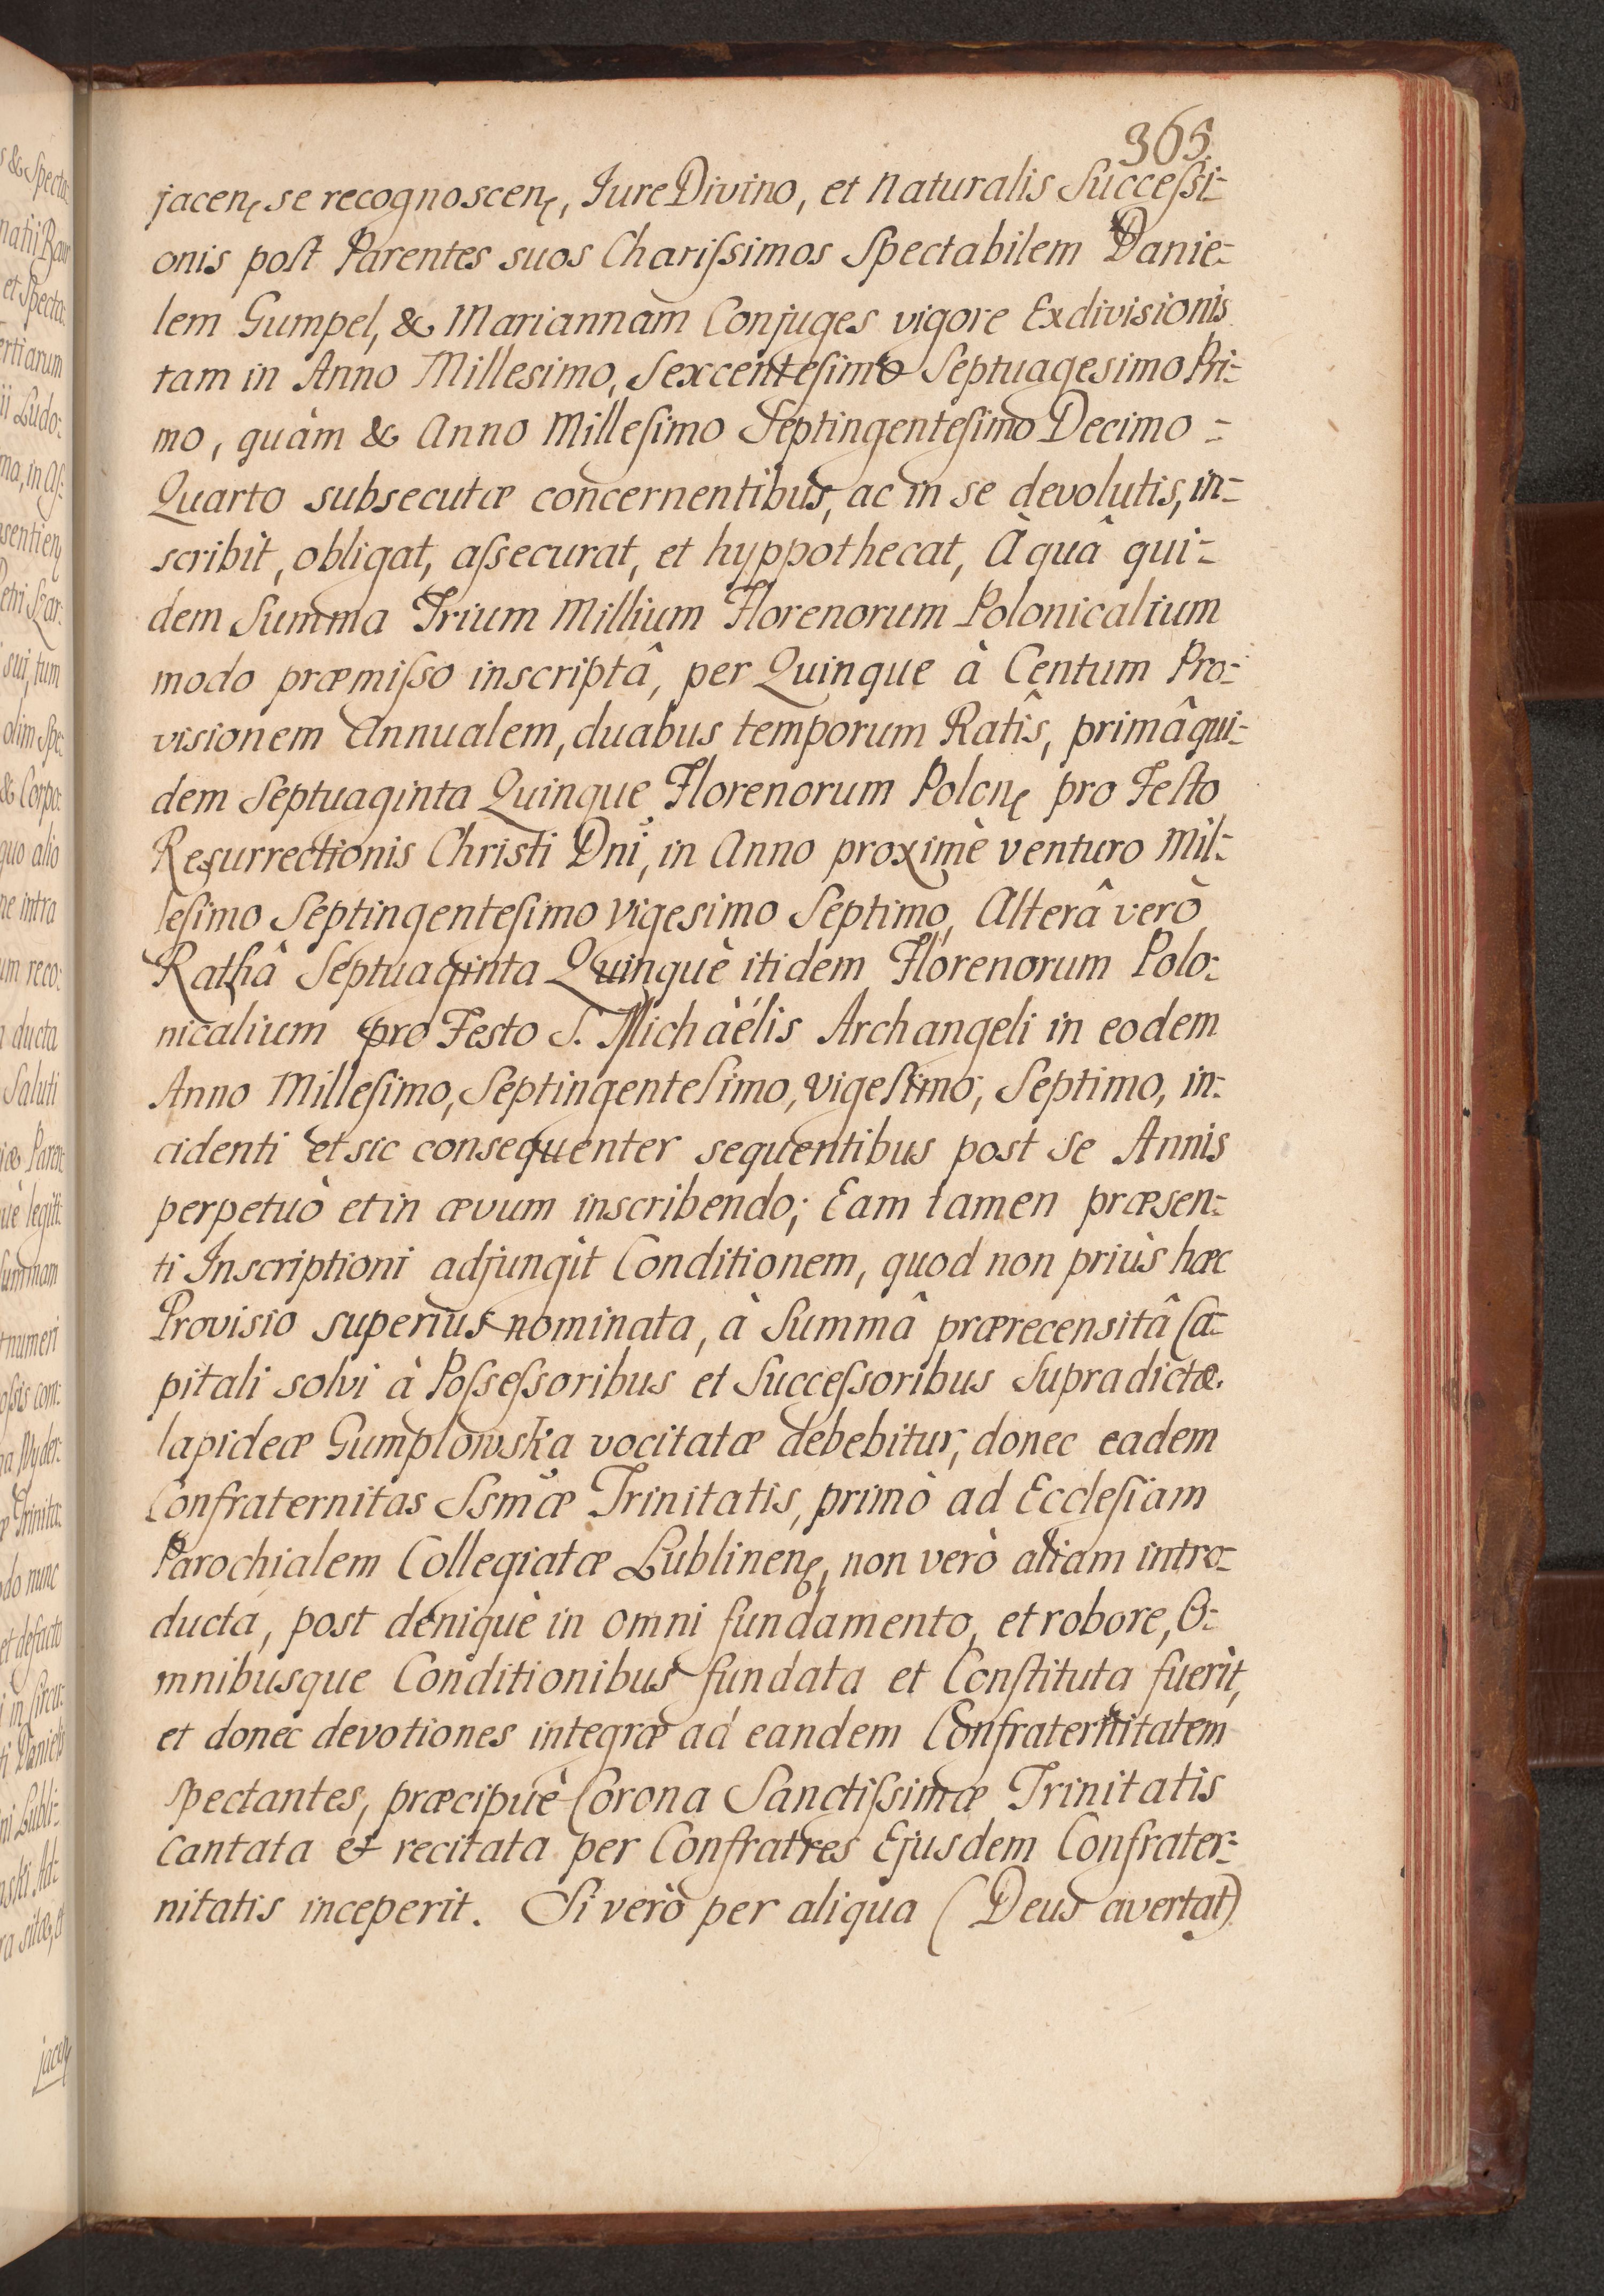 365
jacen̨ se recognoscen̨, Jure Divino, et Naturalis Succeſsi-
onis poſt Parentes suos Chariſsimos Spectabilem Danie-
lem Gumpel, & Mariannam Conjuges vigore Exdivisionis
tam in Anno Millesimo, Sexcenteſimo Septuagesimo Pri-
mo, quàm & Anno Milleſimo Septingenteſimo Decimo =
Quarto subsecutæ concernentibus, ac in se devolutis, in-
scribit, obligat, aſsecurat, et hyppothecat, À quâ qui-
dem Summa Trium Millium Florenorum Polonicalium
modo præmiſso inscriptâ, per Quinque à Centum Pro-
visionem Annualem, duabus temporum Ratîs, primâ qui-
dem Septuaginta Quinque Florenorum Polon̨ pro Feſto
Resurrectionis Christi Dnĩ, in Anno proximè venturo Mil-
leſimo Septingenteſimo Vigesimo Septimo, Alterâ verò
Rathâ Septuaginta Quinquè itidem Florenorum Polo-
nicalium pro Festo S. Michàélis Archangeli in eodem
Anno Milleſimo, Septingenteſimo, vigeſimo, Septimo, in-
cidenti et sic consequenter sequentibus post se Annis
perpetuò et in ævum inscribendo; Eam tamen præsen-
ti Inscriptioni adjungit Conditionem, quod non priùs hæc
Provisio superius nominata, à Summâ prærecensitâ Ca-
pitali solvi à Poſseſsoribus et Succeſsoribus Supradictæ
lapideæ Gumplowska vocitatæ debebitur, donec eadem
Confraternitas Ssmæ Trinitatis, primò ad Eccleſiam
Parochialem Collegiatæ Lublinen̨, non verò aliam intro-
ducta, post deniquè in omni fundamento, et robore, O-
mnibusque Conditionibus fundata et Conſtituta fuerit,
et donec devotiones integræ ad eandem Confraternitatem
spectantes, præcipuè Corona Sanctiſsimæ Trinitatis
cantata et recitata per Confratres Ejusdem Confrater-
nitatis inceperit. Si verò per aliqua (Deus avertat)